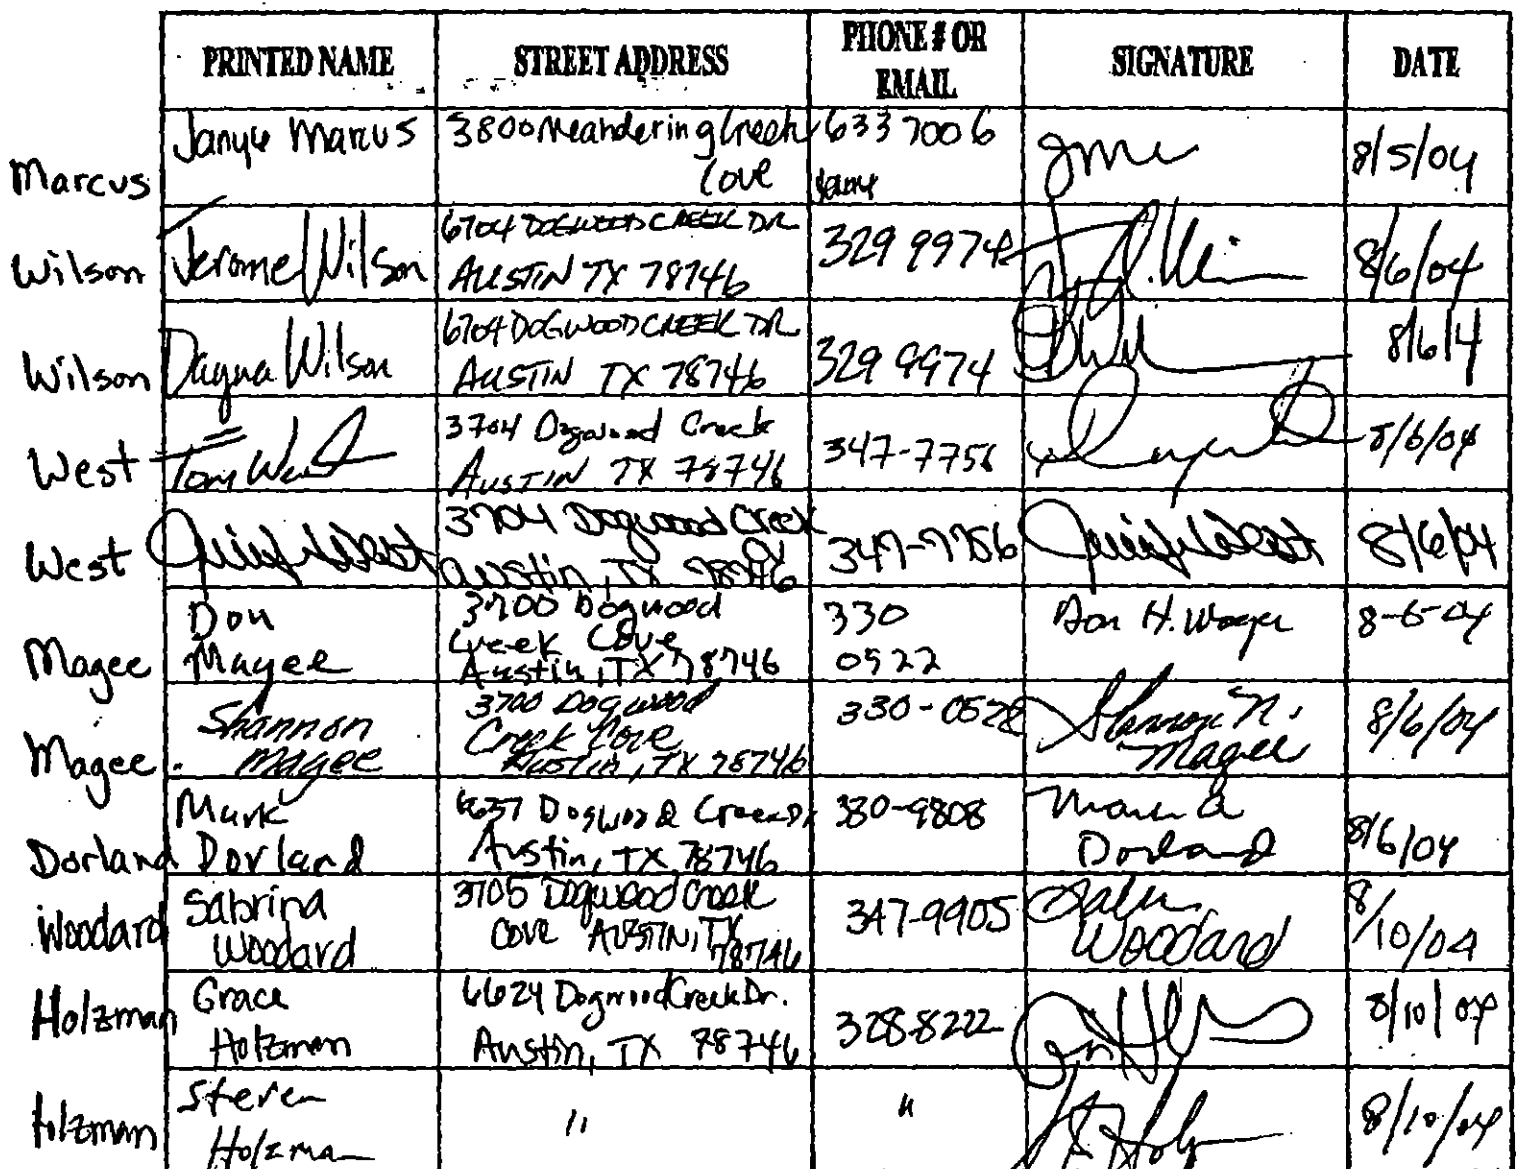 PRINTED NAME STREET ADDRESS PHONE # OR EMAIL SIGNATURE DATE
Marcus Janye Marcus 3800 Meandering Creek Cove 633 7006 8/5/04
Wilson Jerome Wilson 6704 DOGWOOD CREEK DR AUSTIN TX 78746 329 9974 8/6/04
Wilson Dayna Wilson 6704 DOGWOOD CREEK DR AUSTIN TX 78746 329 9974 8/6/4
West Tom West 3704 Dogwood Creek AUSTIN TX 78746 347-7756 8/6/04
West 3704 Dogwood Creek Austin, TX 78746 347-7756 8/6/04
Magee Don Magee 3700 Dogwood Creek Cove Austin, TX 78746 330 0522 Don H. Magee 8-6-04
Magee Shannon Magee 3700 Dogwood Creek Cove Austin, TX 78746 330-0522 Shannon N. Magee 8/6/04
Dorland Mark Dorland 6637 Dogwood Creek Dr Austin, TX 78746 330-9808 Mark A Dorland 8/6/04
Woodard Sabrina Woodard 3705 Dogwood Creek Cove AUSTIN, TX 78746 347-9905 Woodard 8/10/04
Holzman Grace Holzman 6624 Dogwood Creek Dr. Austin, TX 78746 328-8222 8/10/04
Holzman Steven Holzman " " 8/10/04